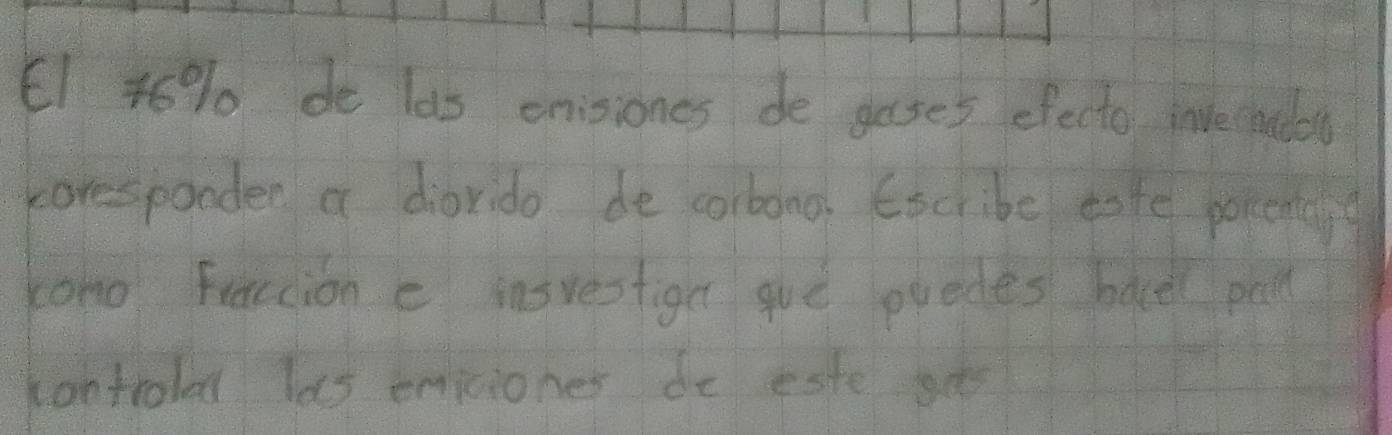 El 76% de las emisiones de gases efecto invernadero
coresponden a dioxido de corbono. Escribe este porcentaje
como fracción e insvestiga qué puedes hacer para
controlar las emiciones de este gas